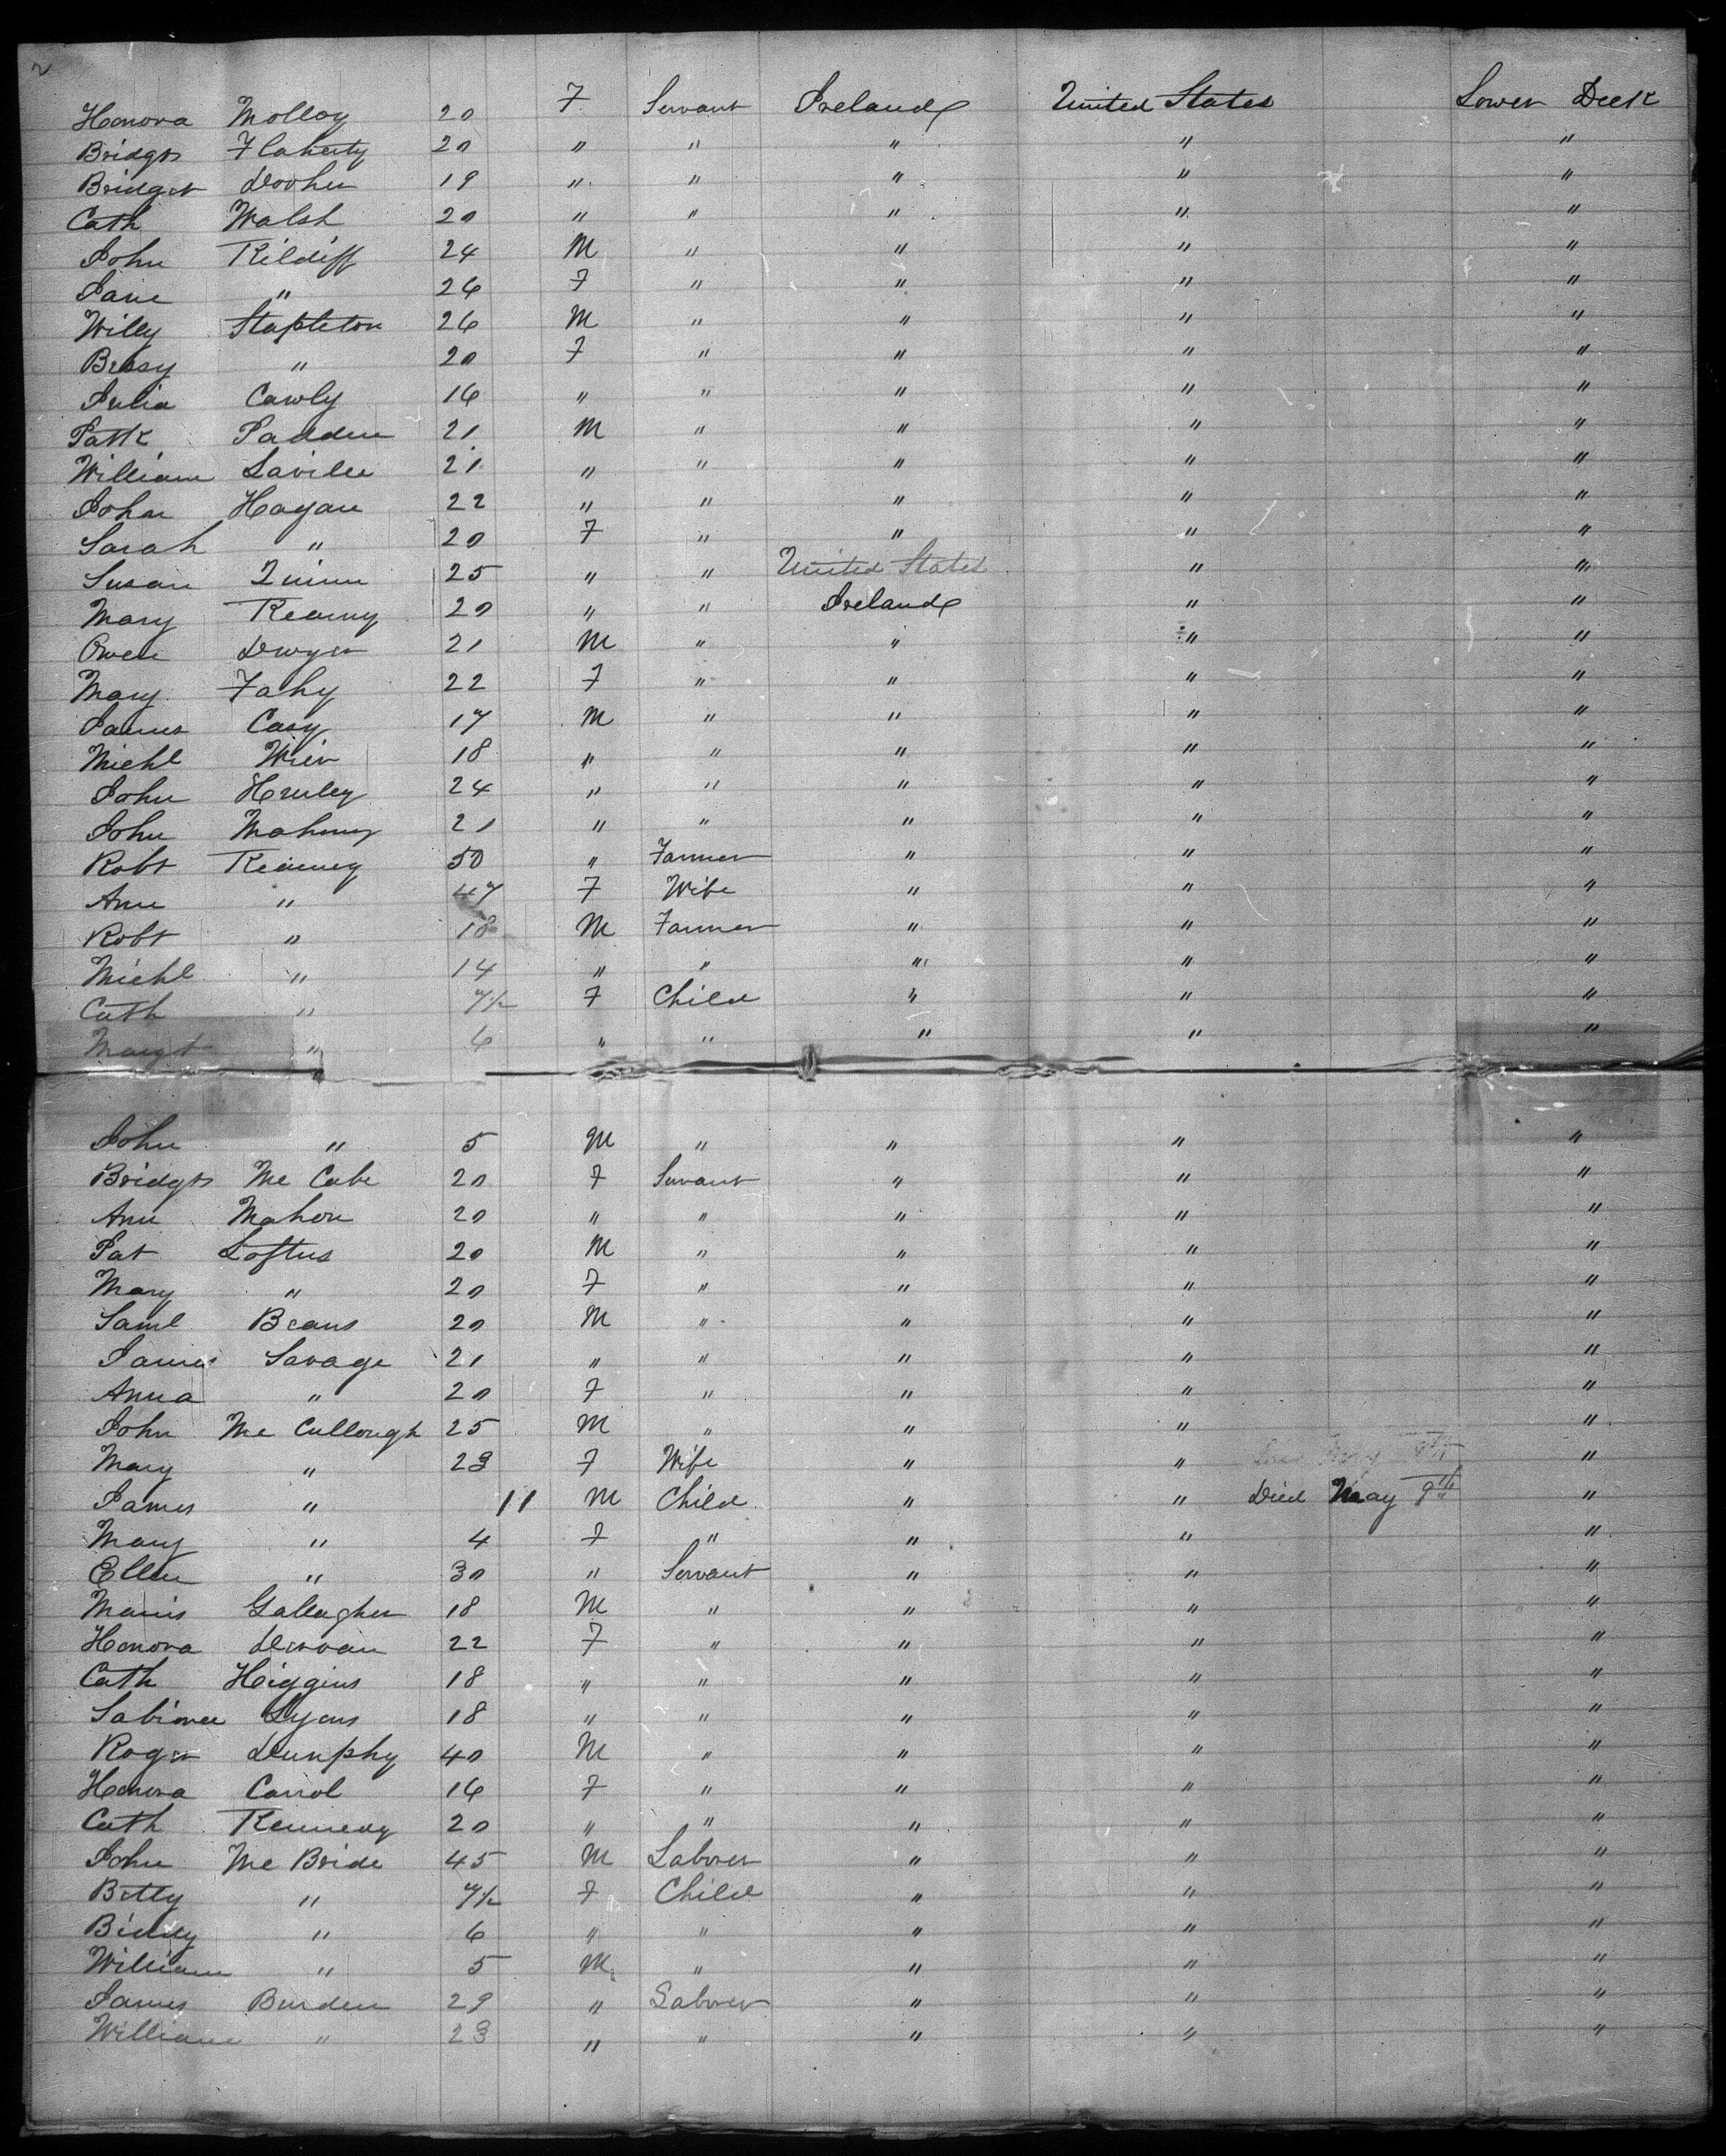 2
Honora Molloy 20 F Servant Ireland United States Lower Deck
Bridgt Flaherty 20 " " " " "
Bridget Doohu 19 " " " " "
Cath Walsh 20 " " " " "
John Kildiff 24 M " " " "
Jane " 26 F " " " "
Willy Stapleton 26 M " " " "
Bessy " 20 F " " " "
Julia Cawly 16 " " " " "
Patk Padden 21 M " " " "
William 21 " " " " "
John Hagan 22 " " " " "
Sarah " 20 F " " " "
Susan Quinn 25 " " United States " "
Mary Kearny 20 " " Ireland " "
Owen Dwyer 21 M " " " "
Mary Fahy 22 F " " " "
James Casy 17 M " " " "
Michl Wier 18 " " " " "
John Henley 24 " " " " "
John Mahony 21 " " " " "
Robt Kearney 50 " Farmer " " "
Ann " 47 F Wife " " "
Robt " 18 M Farmer " " "
Michl " 14 " " " " "
Cath " 7½ F Child " " "
Margt " 6 " " " " "
John " 5 M " " " "
Bridgt Mc Cabe 20 F Servant " " "
Ann Mahon 20 " " " " "
Pat Loftus 20 M " " " "
Mary " 20 F " " " "
Saml Beans 20 M " " " "
James Savage 21 " " " " "
Anna " 20 F " " " "
John Mc Cullough 25 M " " " "
Mary " 23 F Wife " " "
James " 11 M Child " " Died May 9th "
Mary " 4 F " " " "
Ellen " 30 " Servant " " "
Manis Gallagher 18 M " " " "
Honora Dervan 22 F " " " "
Cath Higgins 18 " " " " "
Sabina Lyons 18 " " " " "
Roger Dunphy 40 M " " " "
Honora Carrol 16 F " " " "
Cath Kennedy 20 " " " " "
John Mc Bride 45 M Laborer " " "
Betty " 7½ F Child " " "
Biddy " 6 " " " " "
William " 5 M " " " "
James Burden 29 " Laborer " " "
William " 23 " " " " "